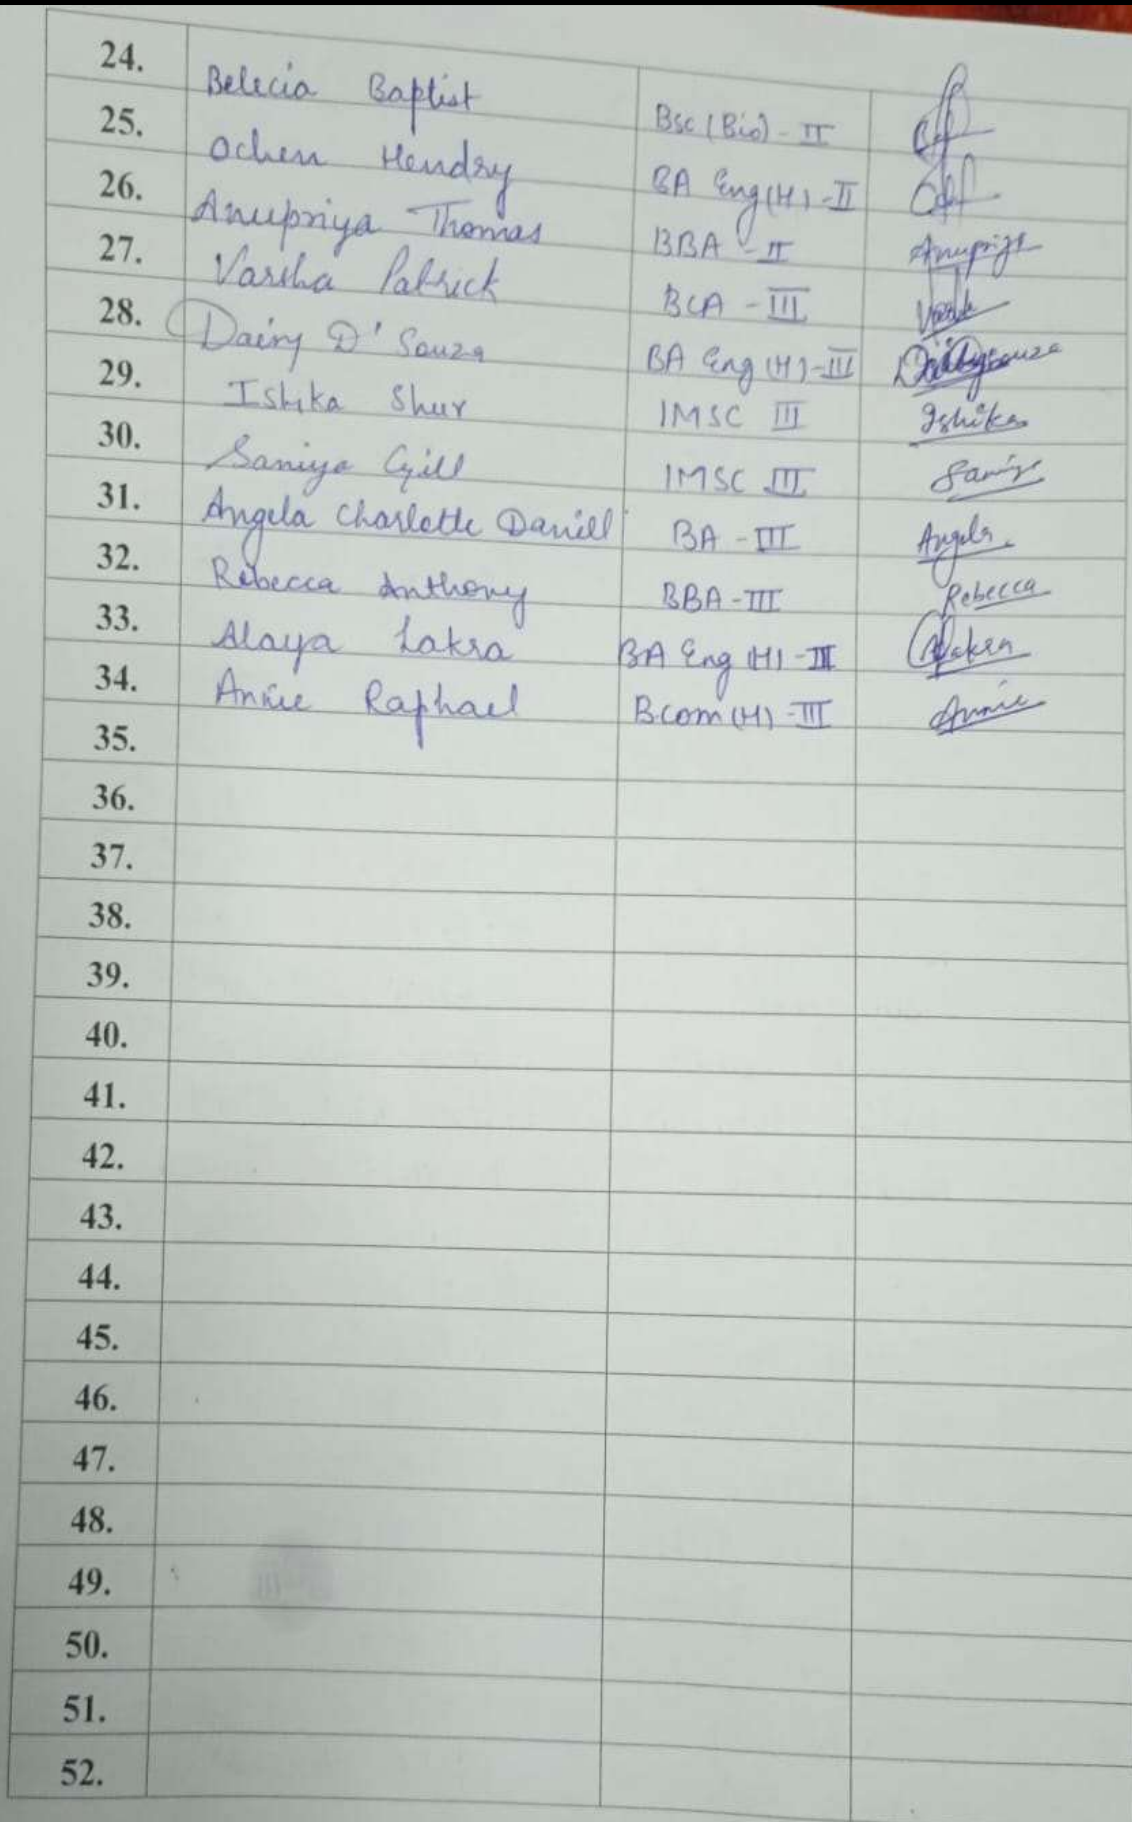 24. Belecia Baptist Bsc (Bio) - II
25. Ochen Hendry BA Eng (H) - II
26. Anupriya Thomas BBA - II Anupriya
27. Varsha Patrick BCA - III
28. Dainy D'Souza BA Eng (H) - III
29. Ishika Shur IMSC III Ishika
30. Saniya Gill IMSC III
31. Angela Charlotte Daniell BA - III Angela
32. Rebecca Anthony BBA - III Rebecca
33. Alaya Lakra BA Eng (H) - III
34. Annie Raphael Bcom (H) - III Annie
35.
36.
37.
38.
39.
40.
41.
42.
43.
44.
45.
46.
47.
48.
49.
50.
51.
52.